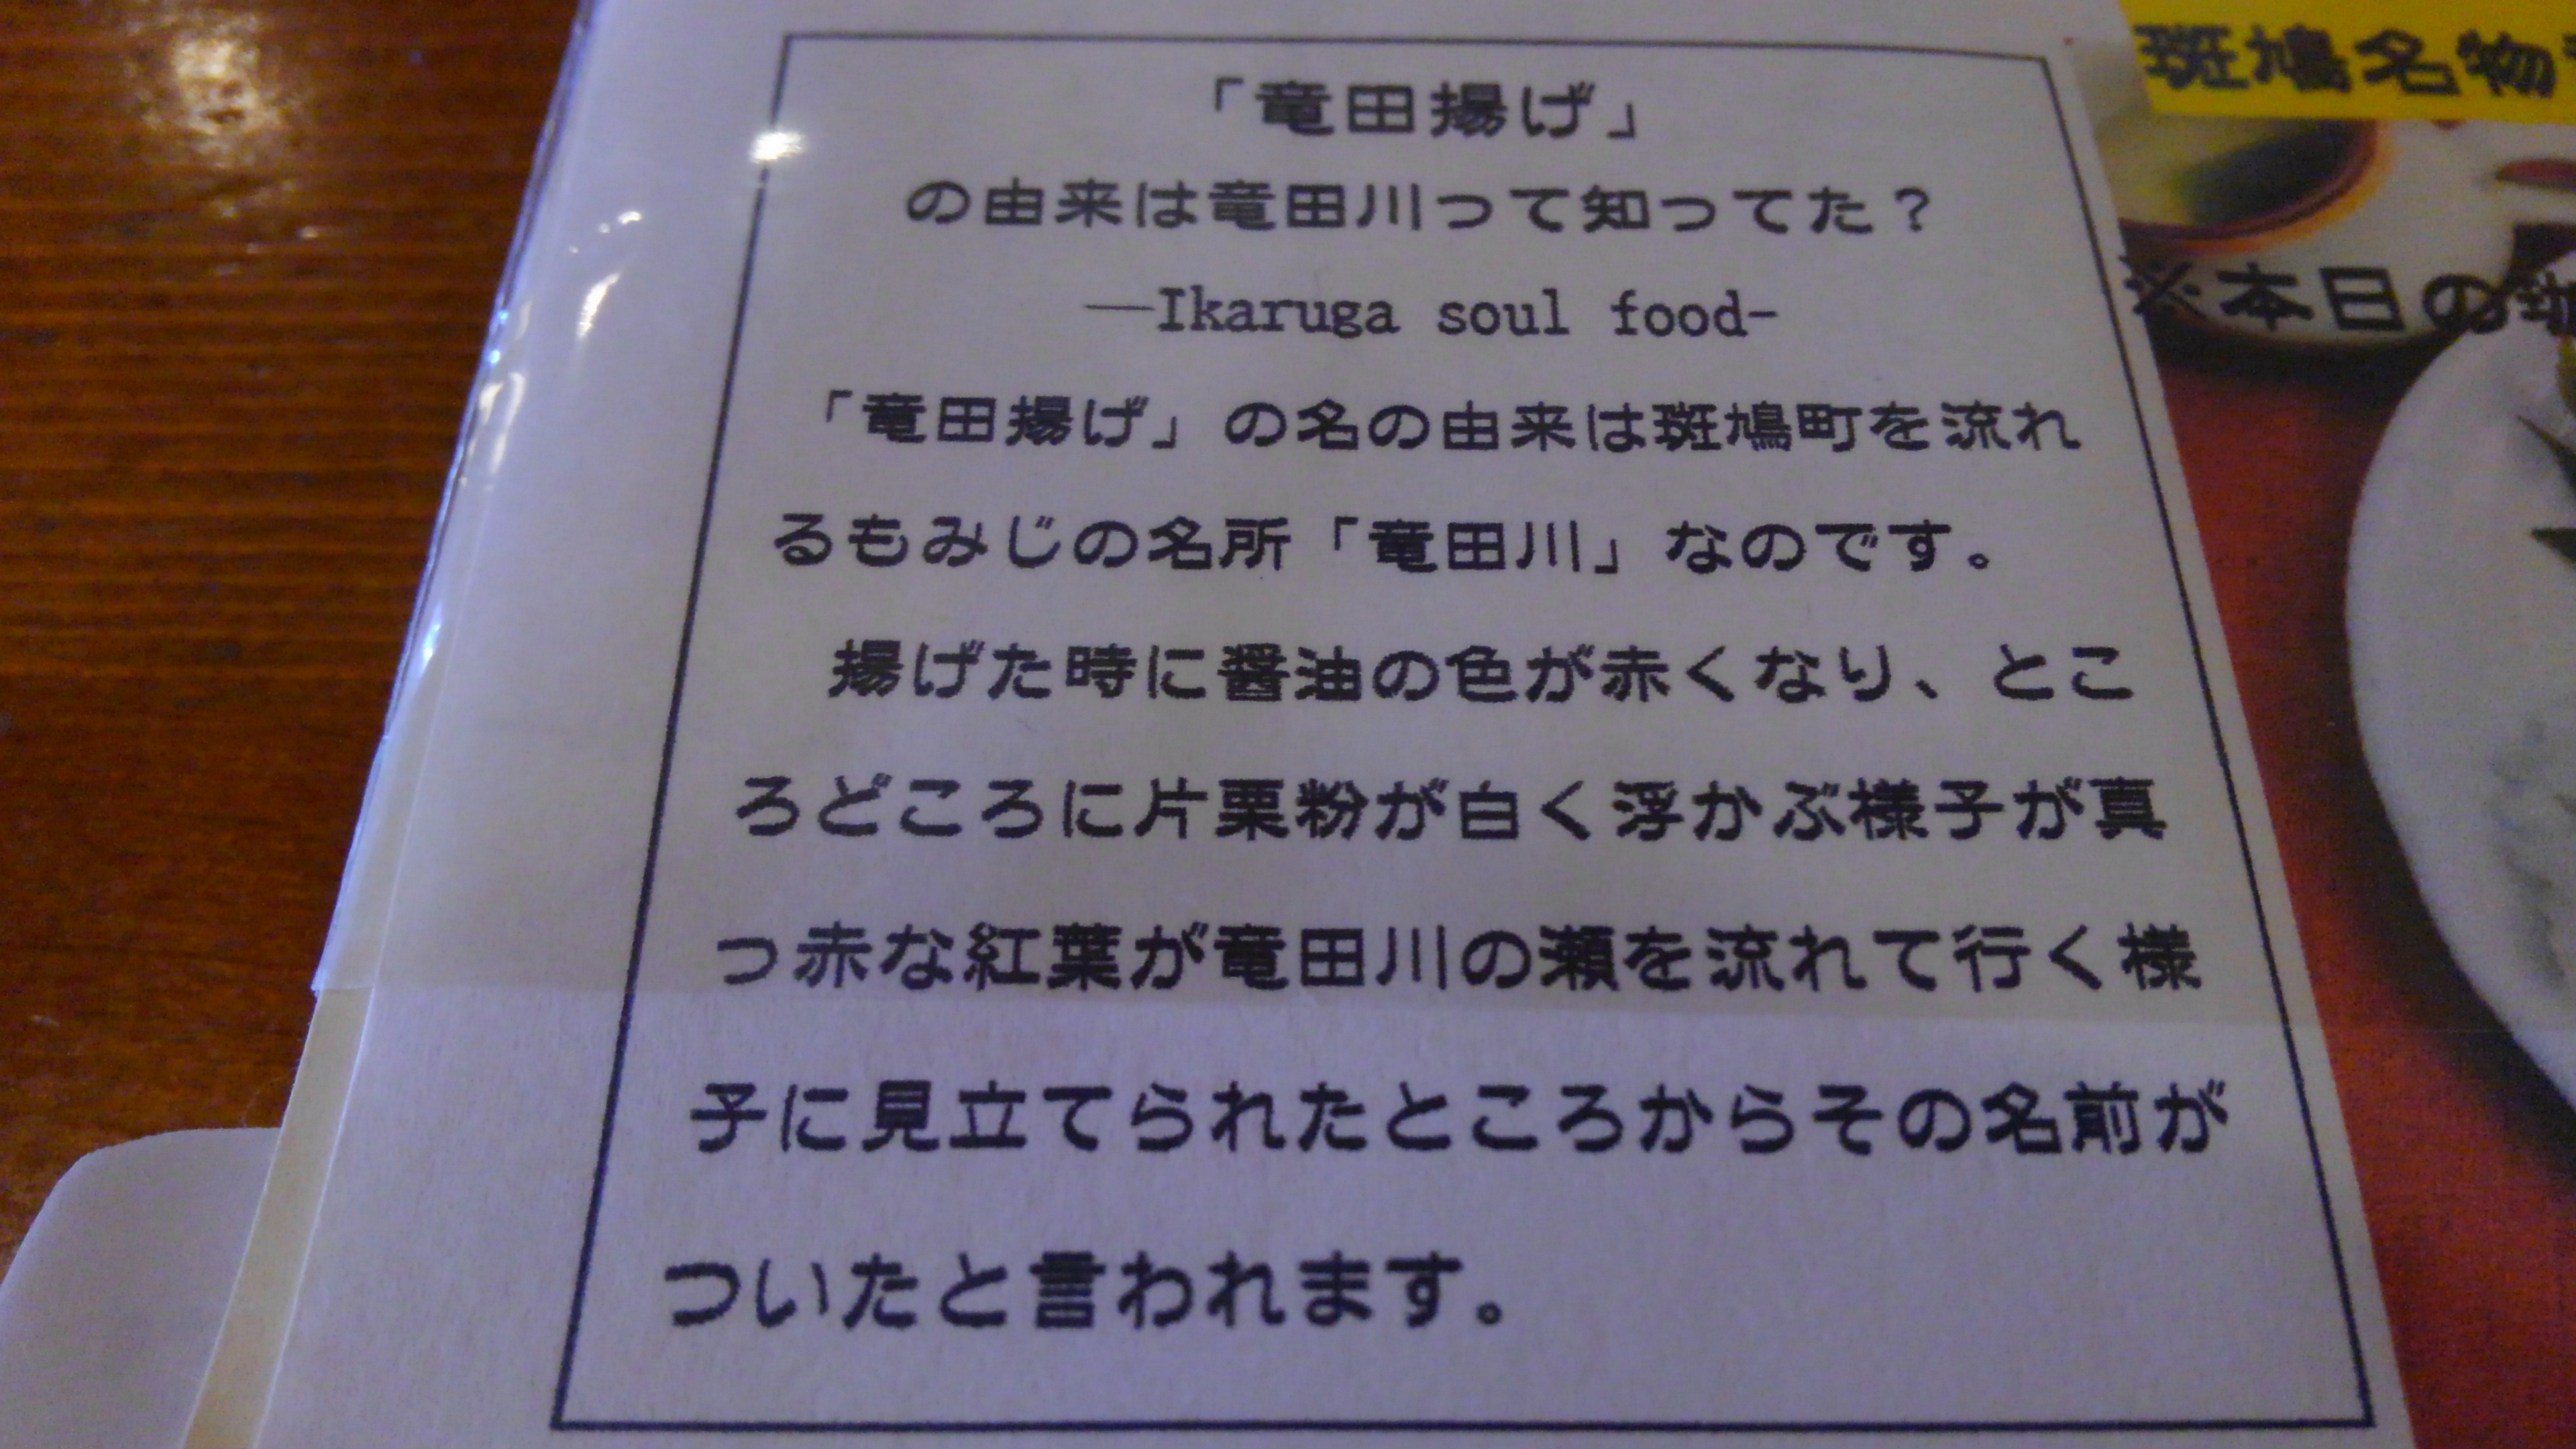 「竜田揚げ」
の由来は竜田川って知ってた？
―Ikaruga soul food-
「竜田揚げ」の名の由来は斑鳩町を流れ
るもみじの名所「竜田川」なのです。
揚げた時に醤油の色が赤くなり、とこ
ろどころに片栗粉が白く浮かぶ様子が真
っ赤な紅葉が竜田川の瀬を流れて行く様
子に見立てられたところからその名前が
ついたと言われます。
斑鳩名物
※本日の